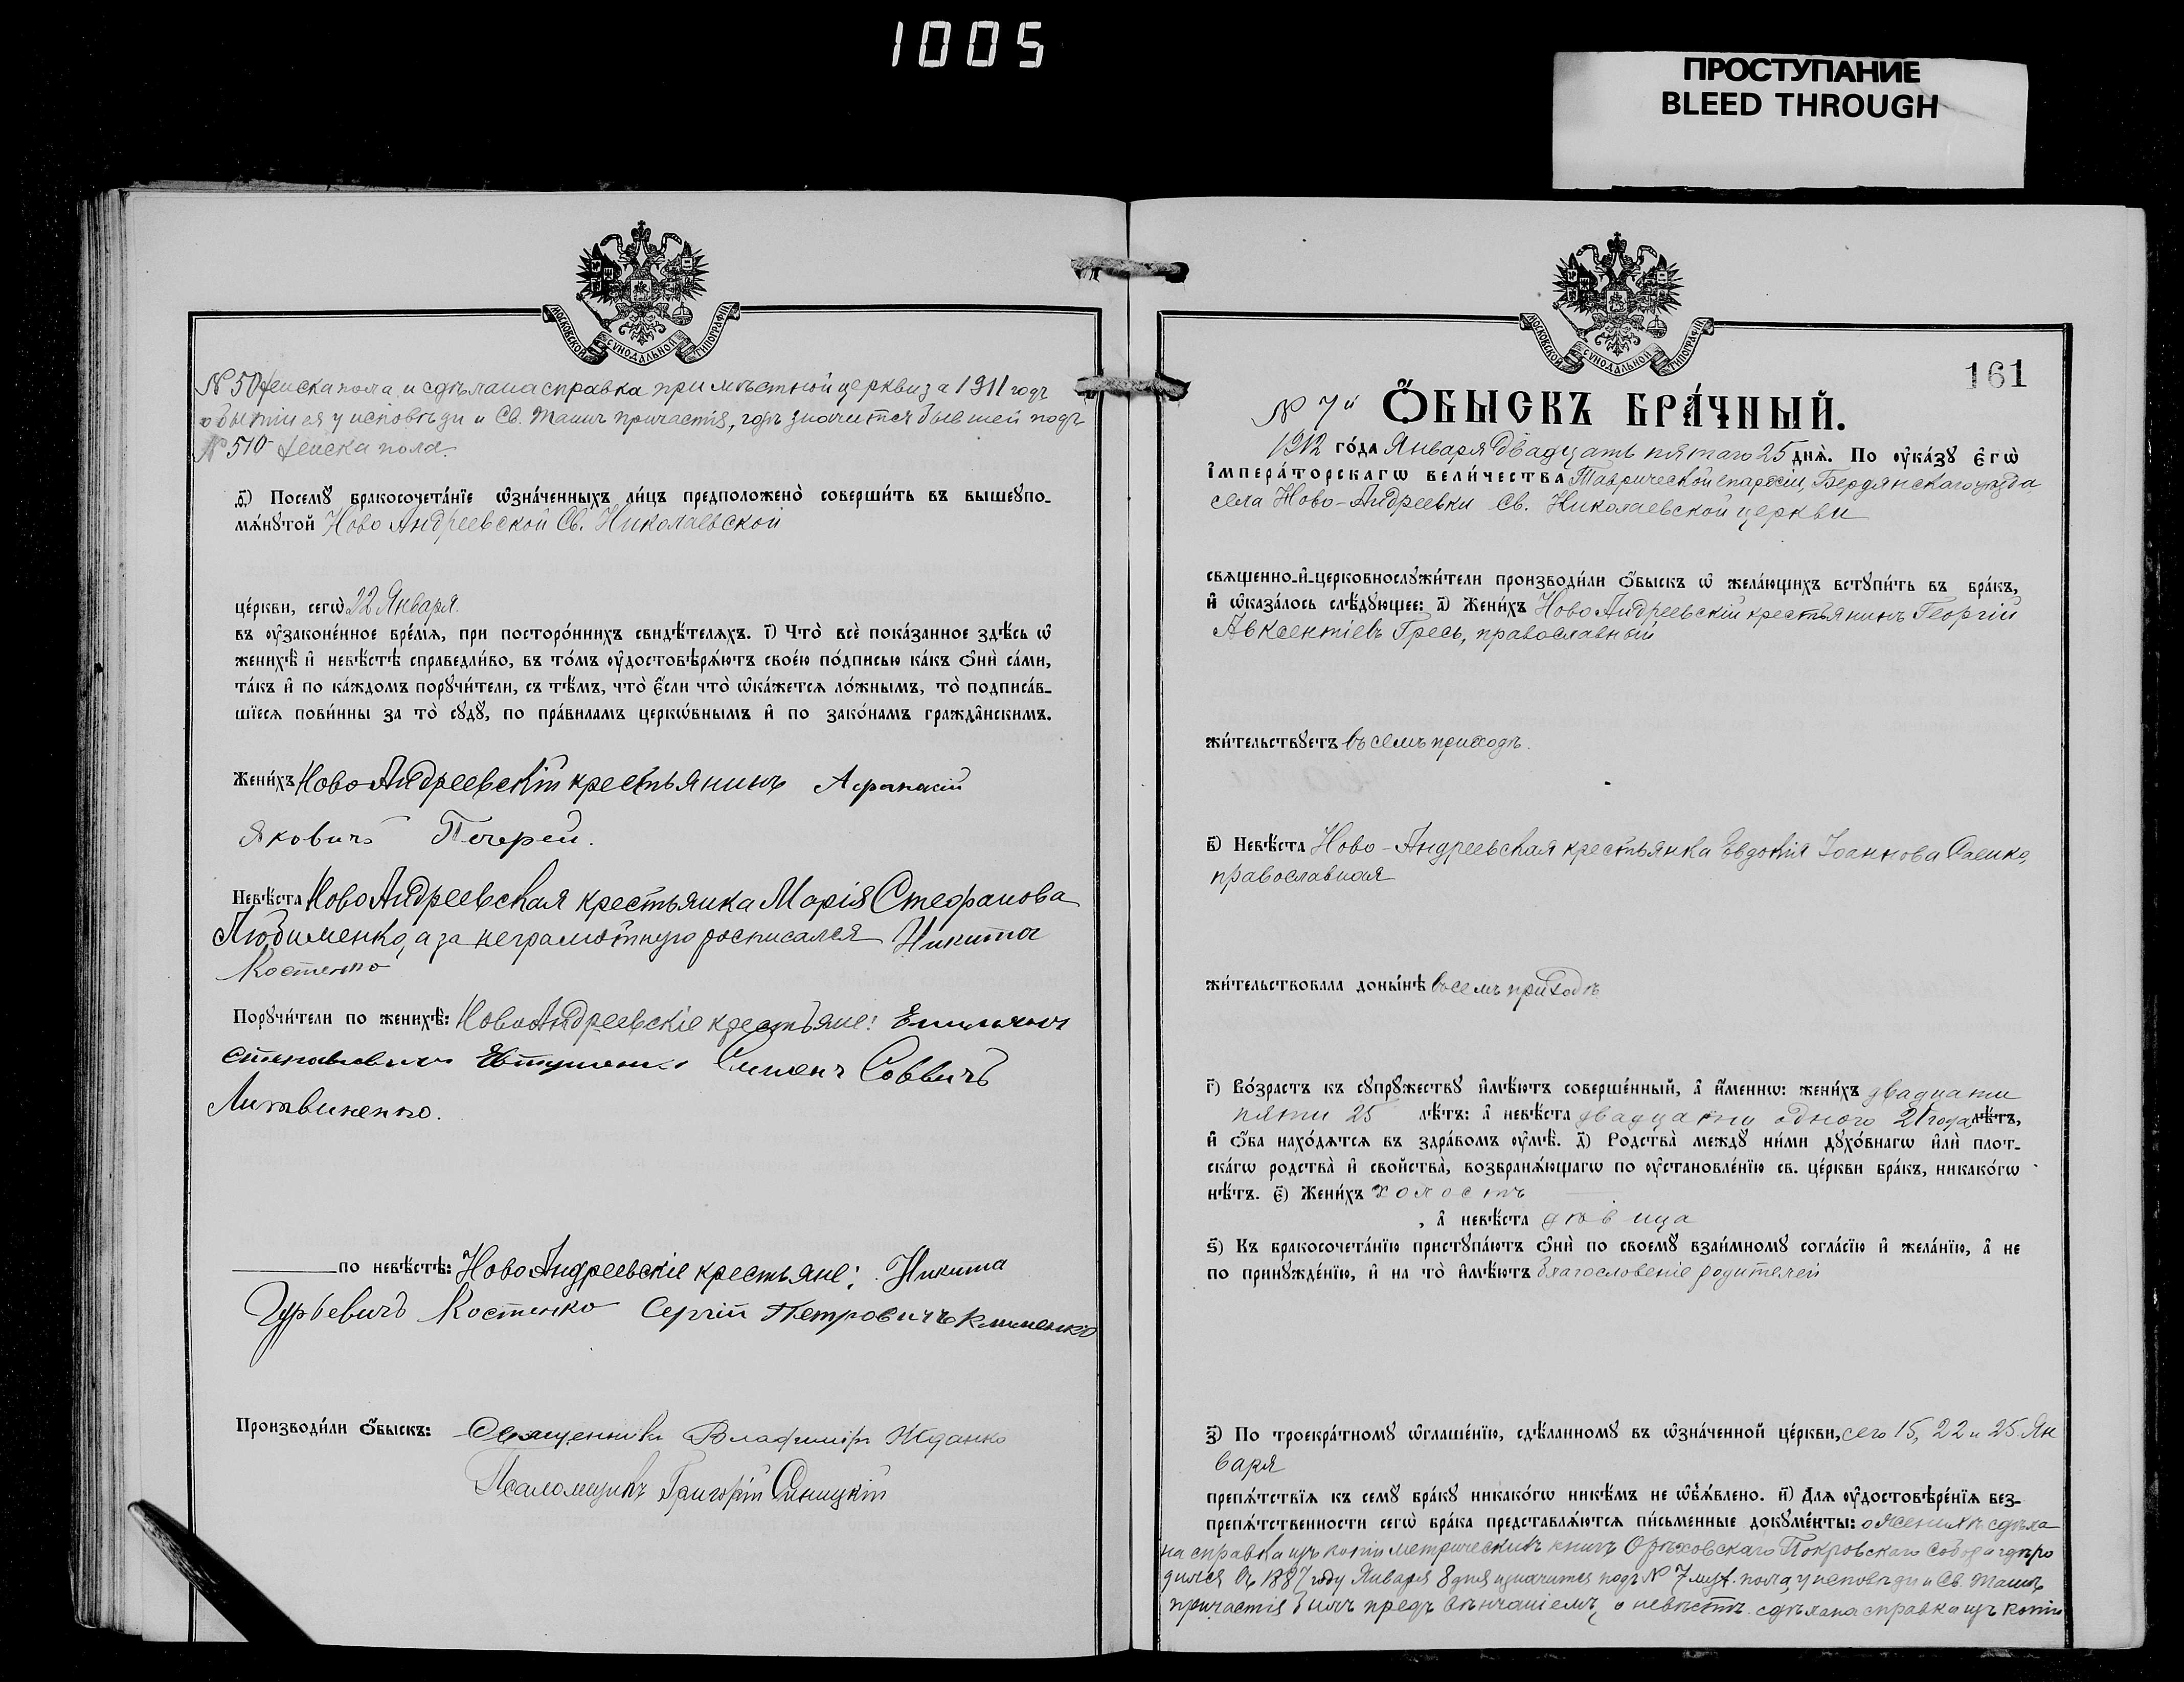 1005
ПРОСТУПАНИЕ
BLEED THROUGH
МОСКОВСКОЙ СѴНОДАЛЬНОЙ ТИПОГРАФІИ
№ 50 женска пола и сдѣлана справка при мѣстной церкви за 1911 годъ
о бытіи ея у исповѣди и Св. Таинъ причастія, гдѣ значится бывшей подъ
№ 510 женска пола.
д҃) Посемꙋ бракосочета́нїе ѡ҆зна́ченныхъ ли́цъ предположено̀ соверши́ть въ вышеꙋпо-
мѧ́нꙋтой Ново Андреевской Св. Николаевской
це́ркви, сегѡ̀ 22 Января.
въ оу҆законе́нное вре́мѧ, при посторо́ннихъ свидѣ́телѧхъ. і҃) Что̀ всѐ пока́занное здѣ́сь ѡ҆
женихѣ̀ и҆ невѣ́стѣ справедли́во, въ то́мъ оу҆достовѣрѧ́ютъ свое́ю по́дписью ка́къ ѻ҆нѝ са́ми,
та́къ и҆ по ка́ждомъ порꙋчи́тели, съ тѣ́мъ, что̀ є҆́сли что̀ ѡ҆ка́жетсѧ ло́жнымъ, то̀ подписа́в-
шїесѧ пови́нны за то̀ сꙋдꙋ̀, по пра́виламъ церко́внымъ и҆ по зако́намъ гражда́нскимъ.
Жени́хъ Ново Андреевскій крестьянинъ Афанасій
Яковичъ Почерей.
Невѣ́ста Ново Андреевская крестьянка Марія Стефанова
Любименко, а за неграмотную росписался Никита
Костенко
Порꙋчи́тели по женихѣ̀: Ново Андреевскіе крестьяне: Емильянъ
Степановичъ Евтушенко Симонъ Саввичъ
Литвиненко.
по невѣ́стѣ: Ново Андреевскіе крестьяне: Никита
Гурьевичъ Костенко Сергій Петровичъ Клименко
Производи́ли ѻ҆́быскъ: Священникъ Владиміръ Жданко
Псаломщикъ Григорій Синицкій
МОСКОВСКОЙ СѴНОДАЛЬНОЙ ТИПОГРАФІИ
161
№ 7й Ѻ҆́БЫСКЪ БРА́ЧНЫЙ.
1912 го́да Января двадцать пятаго 25 днѧ̀. По оу҆ка́зꙋ є҆гѡ̀
і҆мпера́торскагѡ вели́чества Таврической епархіи, Бердянскаго уѣзда
села Ново-Андреевки Св. Николаевской церкви
свѧщенно-и҆-церковнослꙋжи́тели производи́ли ѻ҆́быскъ ѡ҆ жела́ющихъ встꙋпи́ть въ бра́къ,
и҆ ѡ҆каза́лось слѣ́дꙋющее: а҃) Жени́хъ Ново Андреевскій крестьянинъ Георгій
Авксентіевъ Гресь, православный
жи́тельствꙋетъ въ семъ приходѣ.
в҃) Невѣ́ста Ново-Андреевская крестьянка Евдокія Іоаннова Саенко,
православная
жи́тельствовала доны́нѣ въ семъ приходѣ
г҃) Во́зрастъ къ сꙋпрꙋ́жествꙋ и҆мѣ́ютъ соверше́нный, а҆ и҆́меннѡ: жени́хъ двадцати
пяти 25 лѣ́тъ: а҆ невѣ́ста двадцати одного 21 года лѣ́тъ,
и҆ ѻ҆́ба нахо́дѧтсѧ въ здра́вомъ оу҆мѣ̀. д҃) Родства̀ междꙋ̀ ни́ми дꙋхо́внагѡ и҆лѝ плот-
ска́гѡ родства̀ и҆ свойства̀, возбранѧ́ющагѡ по оу҆становле́нїю св. це́ркви бра́къ, никако́гѡ
нѣ́тъ. є҃) Жени́хъ холостъ
, а҆ невѣ́ста дѣвица
ѕ҃) Къ бракосочета́нїю пристꙋпа́ютъ ѻ҆нѝ по своемꙋ̀ взаи́мномꙋ согла́сїю и҆ жела́нїю, а҆ не
по принꙋжде́нїю, и҆ на то̀ и҆мѣ́ютъ благословеніе родителей
з҃) По троекра́тномꙋ ѡ҆глаше́нїю, сдѣ́ланномꙋ въ ѡ҆зна́ченной це́ркви, сего 15, 22 и 25 Ян
варя
препѧ́тствїѧ къ семꙋ̀ бра́кꙋ никако́гѡ никѣ́мъ не ѡ҆б̾ѧ́влено. и҃) Длѧ оу҆достовѣре́нїѧ без-
препѧ́тственности сегѡ̀ бра́ка представлѧ́ютсѧ пи́сьменные докꙋме́нты: о женихѣ сдѣла
на справка изъ копіи метрическихъ книгъ Орѣховскаго Покровскаго Собора гдѣ ро
дился въ 1887 году Января 8 дня и значится подъ № 7 муж. пола, у исповѣди и Св. Таинъ
причастія былъ предъ вѣнчаніемъ, о невѣстѣ сдѣлана справка изъ копіи